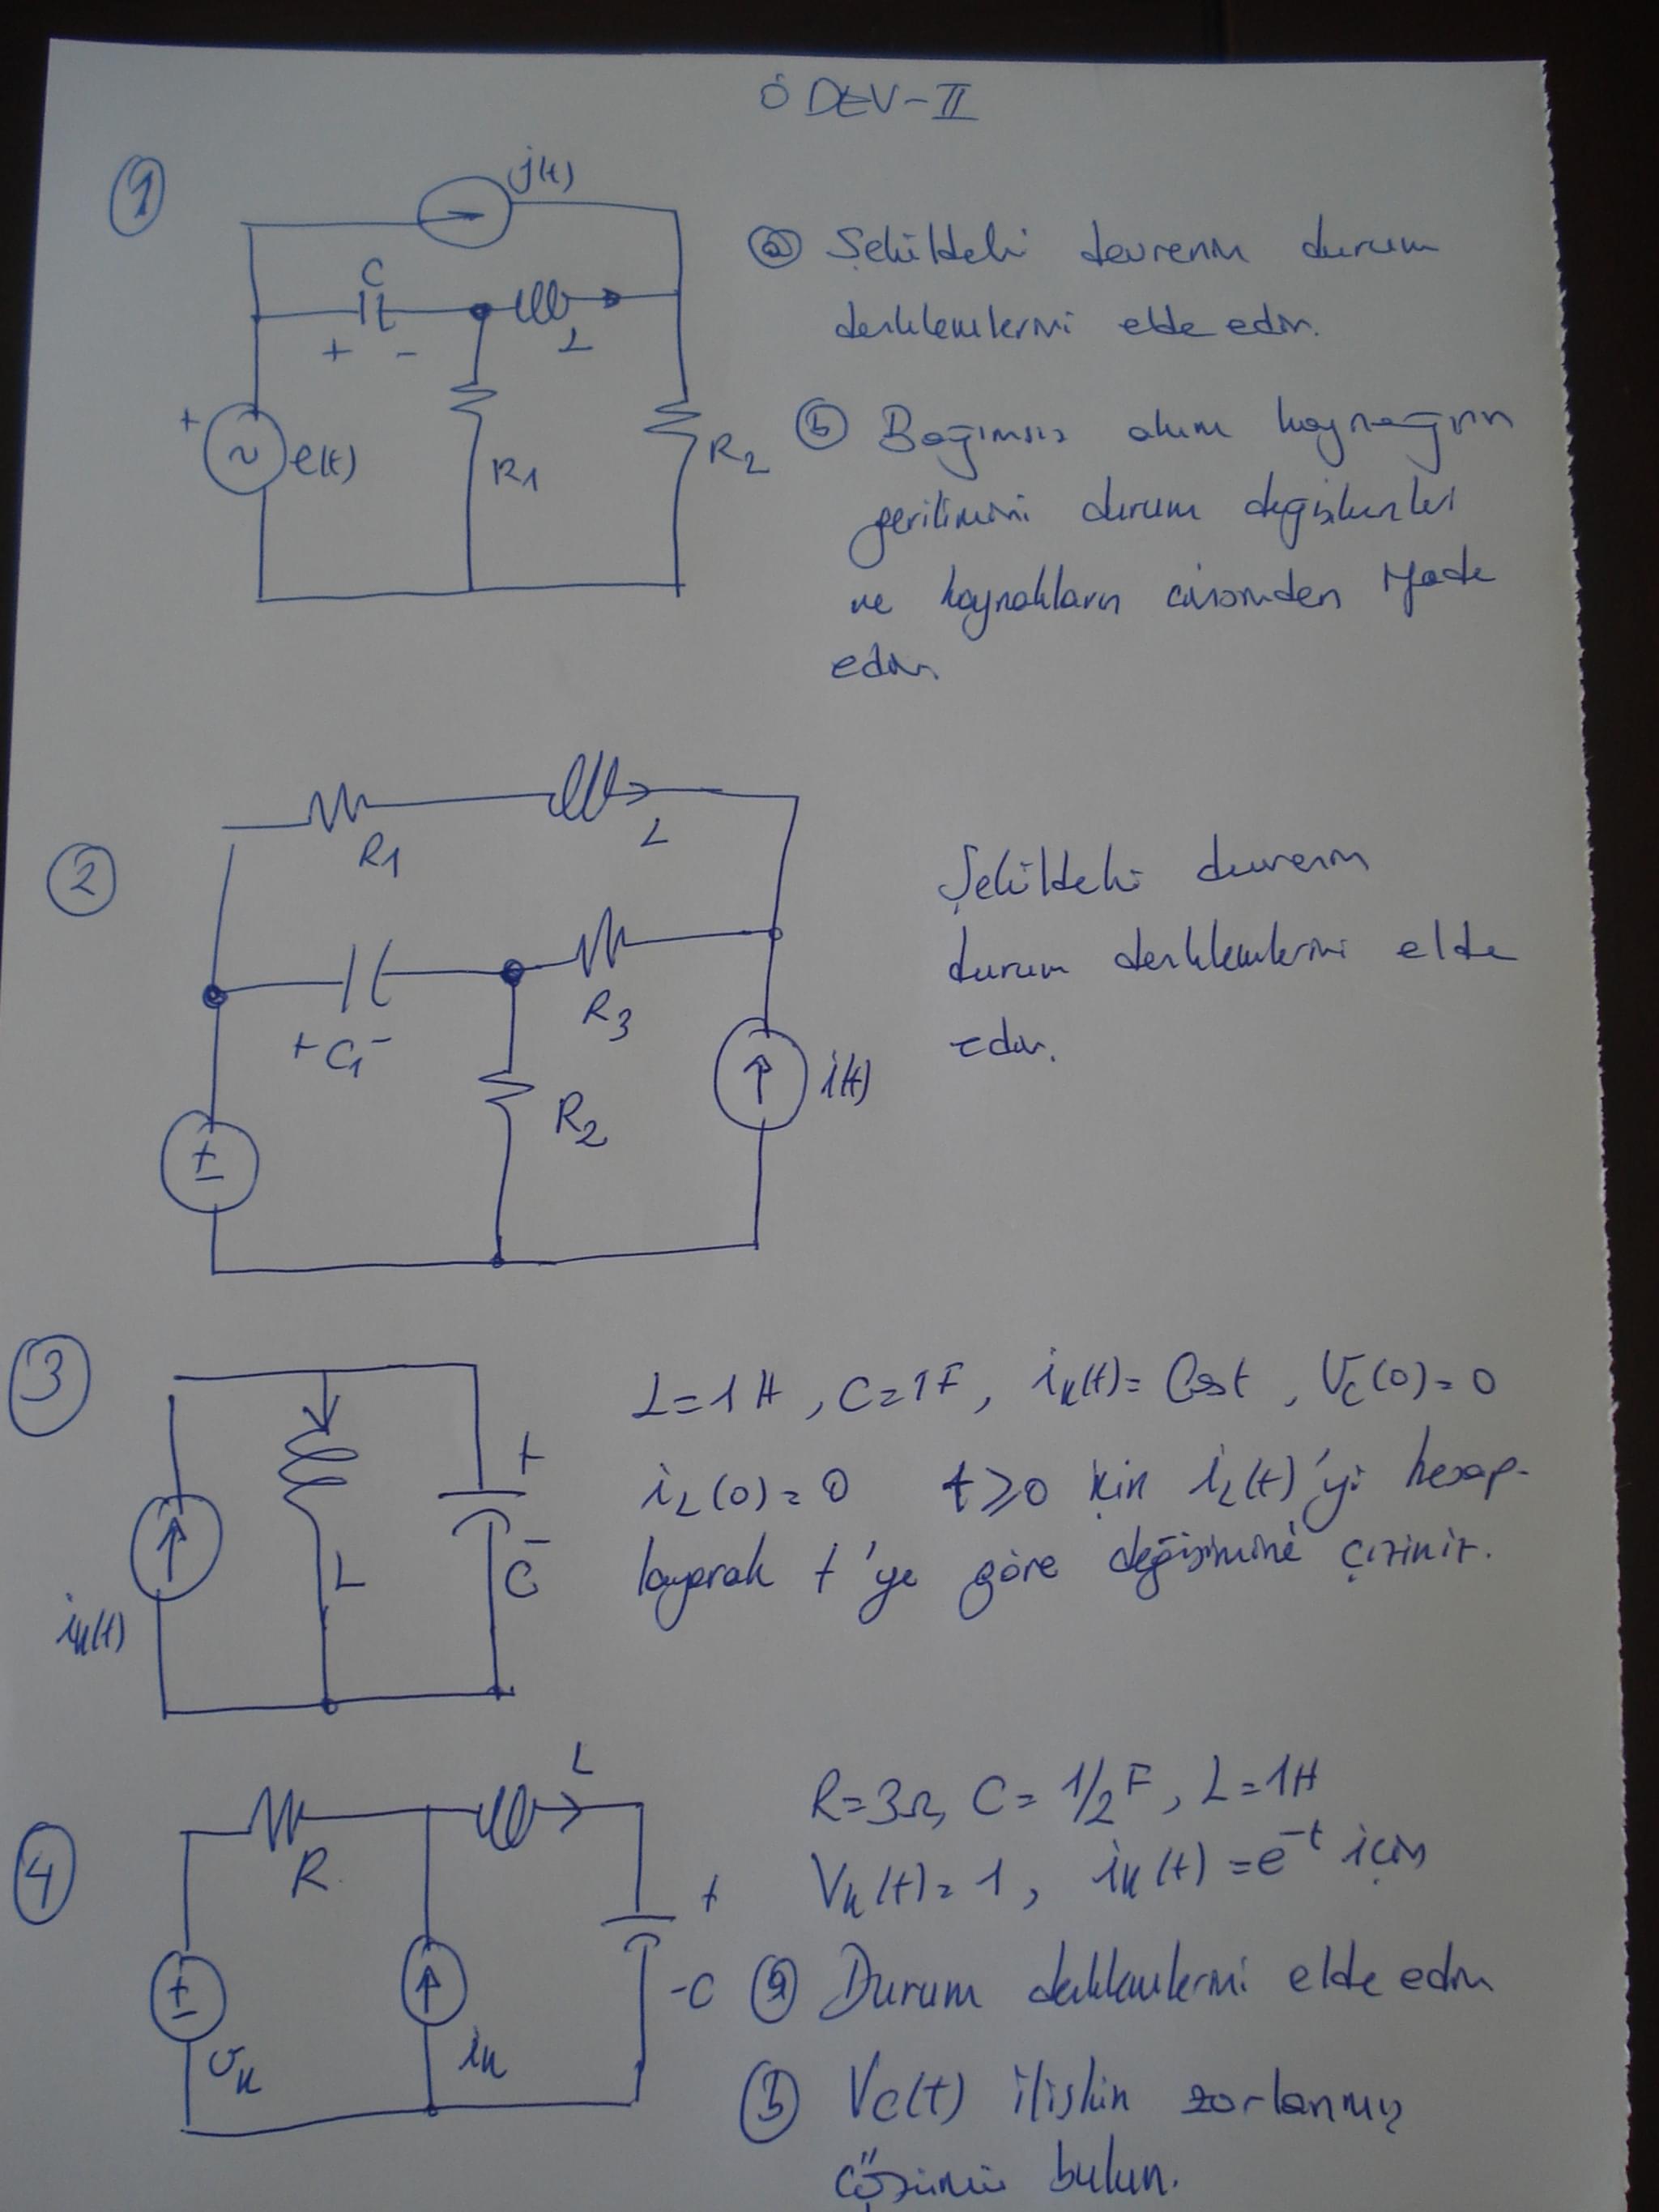 ÖDEV-II
1
j(t)
C
+ -
L
+
e(t)
R1
R2
a Şekildeki devrenin durum
denklemlerini elde edin.
b Bağımsız akım kaynağının
gerilimini durum değişkenleri
ve kaynakların cinsinden ifade
edin.
2
R1
L
+ C1 -
R3
R2
±
i(t)
Şekildeki devrenin
durum denklemlerini elde
edin.
3
ik(t)
L
+
-
C
L=1H, C=1F, ik(t)=Cost, Vc(0)=0
iL(0)=0 t≥0 için iL(t)'yi hesap-
layarak t'ye göre değişimini çiziniz.
4
R
L
+
-C
±
vk
ik
R=3Ω, C=1/2F, L=1H
Vk(t)=1, ik(t)=e^-t için
a Durum denklemlerini elde edin
b Vc(t) ilişkin zorlanmış
çözümü bulun.